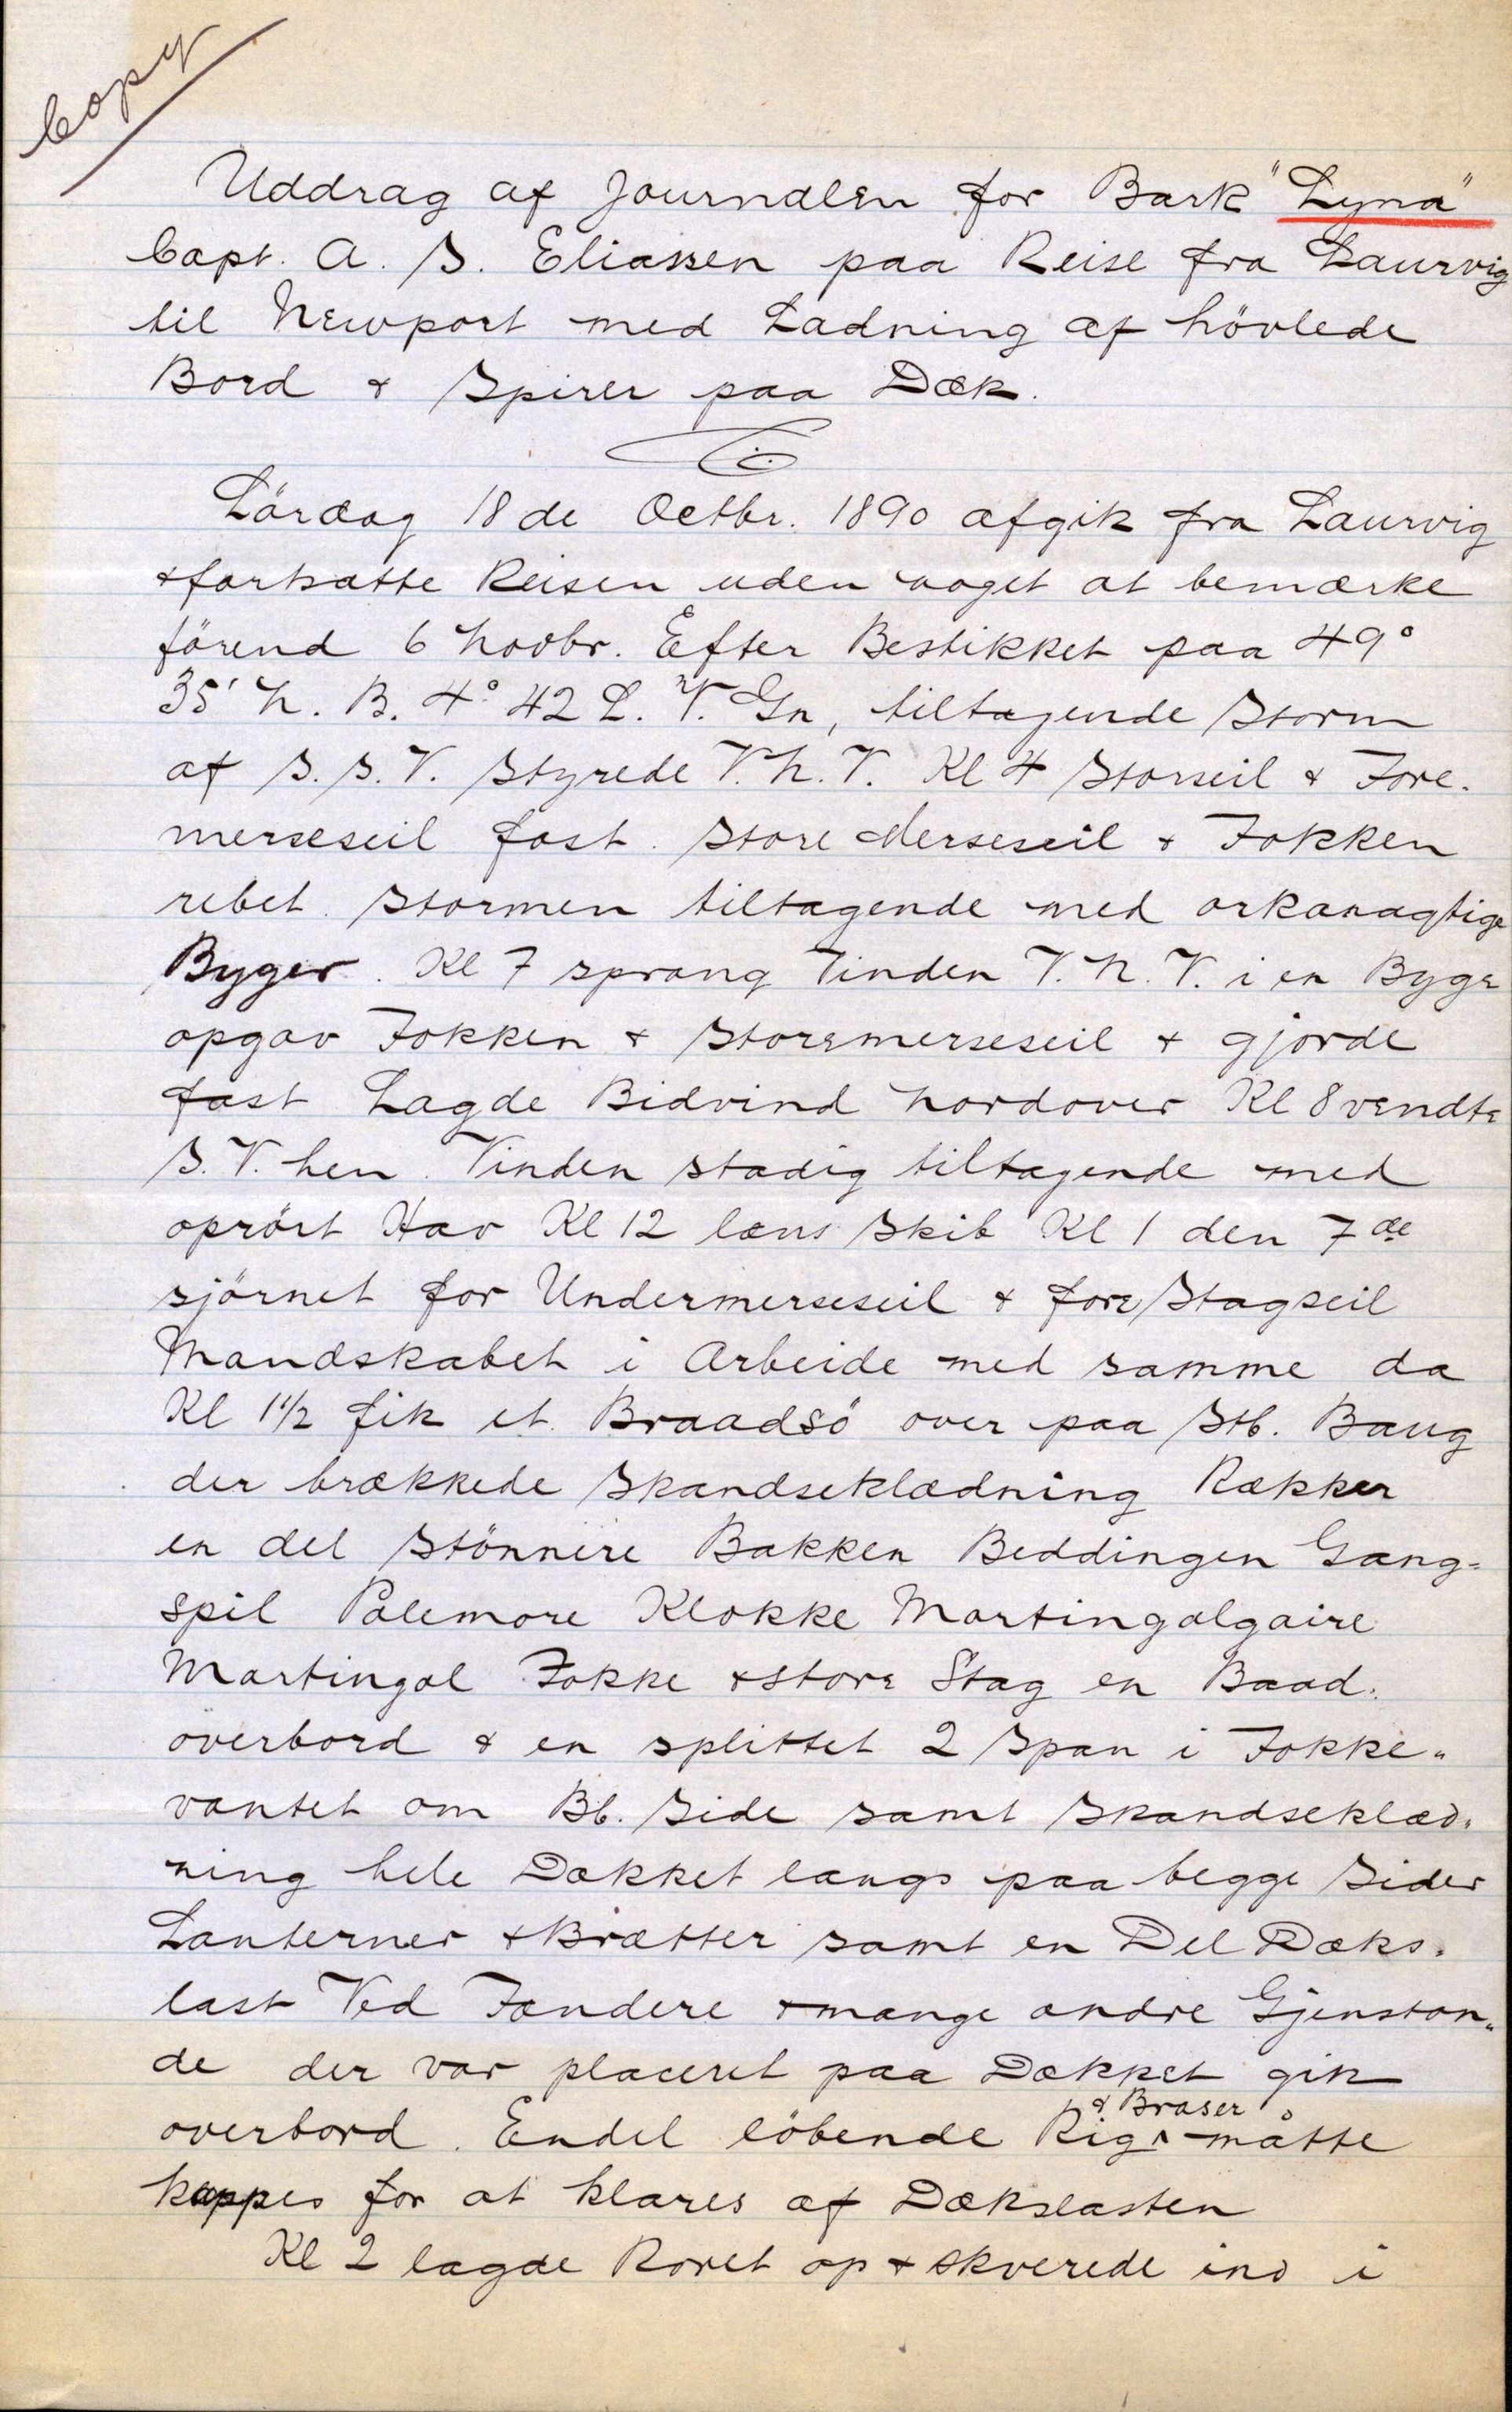 Copy
Uddrag af Journalen for Bark "Lyna"
Capt. A. S. Eliassen paa Reise fra Laurvig
til Newport med Ladning af hövlede
Bord & Spirer paa Dæk.
Lördag 18 de Octbr. 1890 afgik fra Laurvig
& fortsatte Reisen uden noget at bemærke
förend 6 Novbr. Efter Bestikket paa 49°
35' N. B. 4° 42 L. V. Gr, tiltagende Storm
af S. S. V. Styrede V. N. V. Kl 4 Storseil & Fore-
merseseil fast. Store Merseseil & Fokken
rebet. Stormen tiltagende med orkanagtige
Byger. Kl 7 sprang Vinden V. N. V. i en Byge
opgav Fokken & Storemerseseil & gjorde
fast Lagde Bidvind Nordover Kl 8 vendte
S. V. hen. Vinden stadig tiltagende med
oprört Hav Kl 12 læns Skib Kl 1 den 7 de
sjörnet for Undermerseseil & fore Stagseil
Mandskabet i Arbeide med samme da
Kl 1 1/2 fik et Braadsö over paa Stb. Baug
der brækkede Skandseklædning Rækker
en del Stönnere Bakken Beddingen Gang-
spil Palemore Klokke Martingalgaire
Martingal Fokke & store Stag en Baad
overbord & en splittet 2 Span i Fokke-
vantet om Bb. Side samt Skandseklæd-
ning hele Dækket langs paa begge Sider
Lanterner & Brætter samt en Del Dæks-
last Ved Fandere & mange andre Gjenstan-
de der var placeret paa Dækket gik
overbord. Endel löbende Rig & Braser måtte
kappes for at klares af Dækslasten
Kl 2 lagde Roret op & skverede ind i